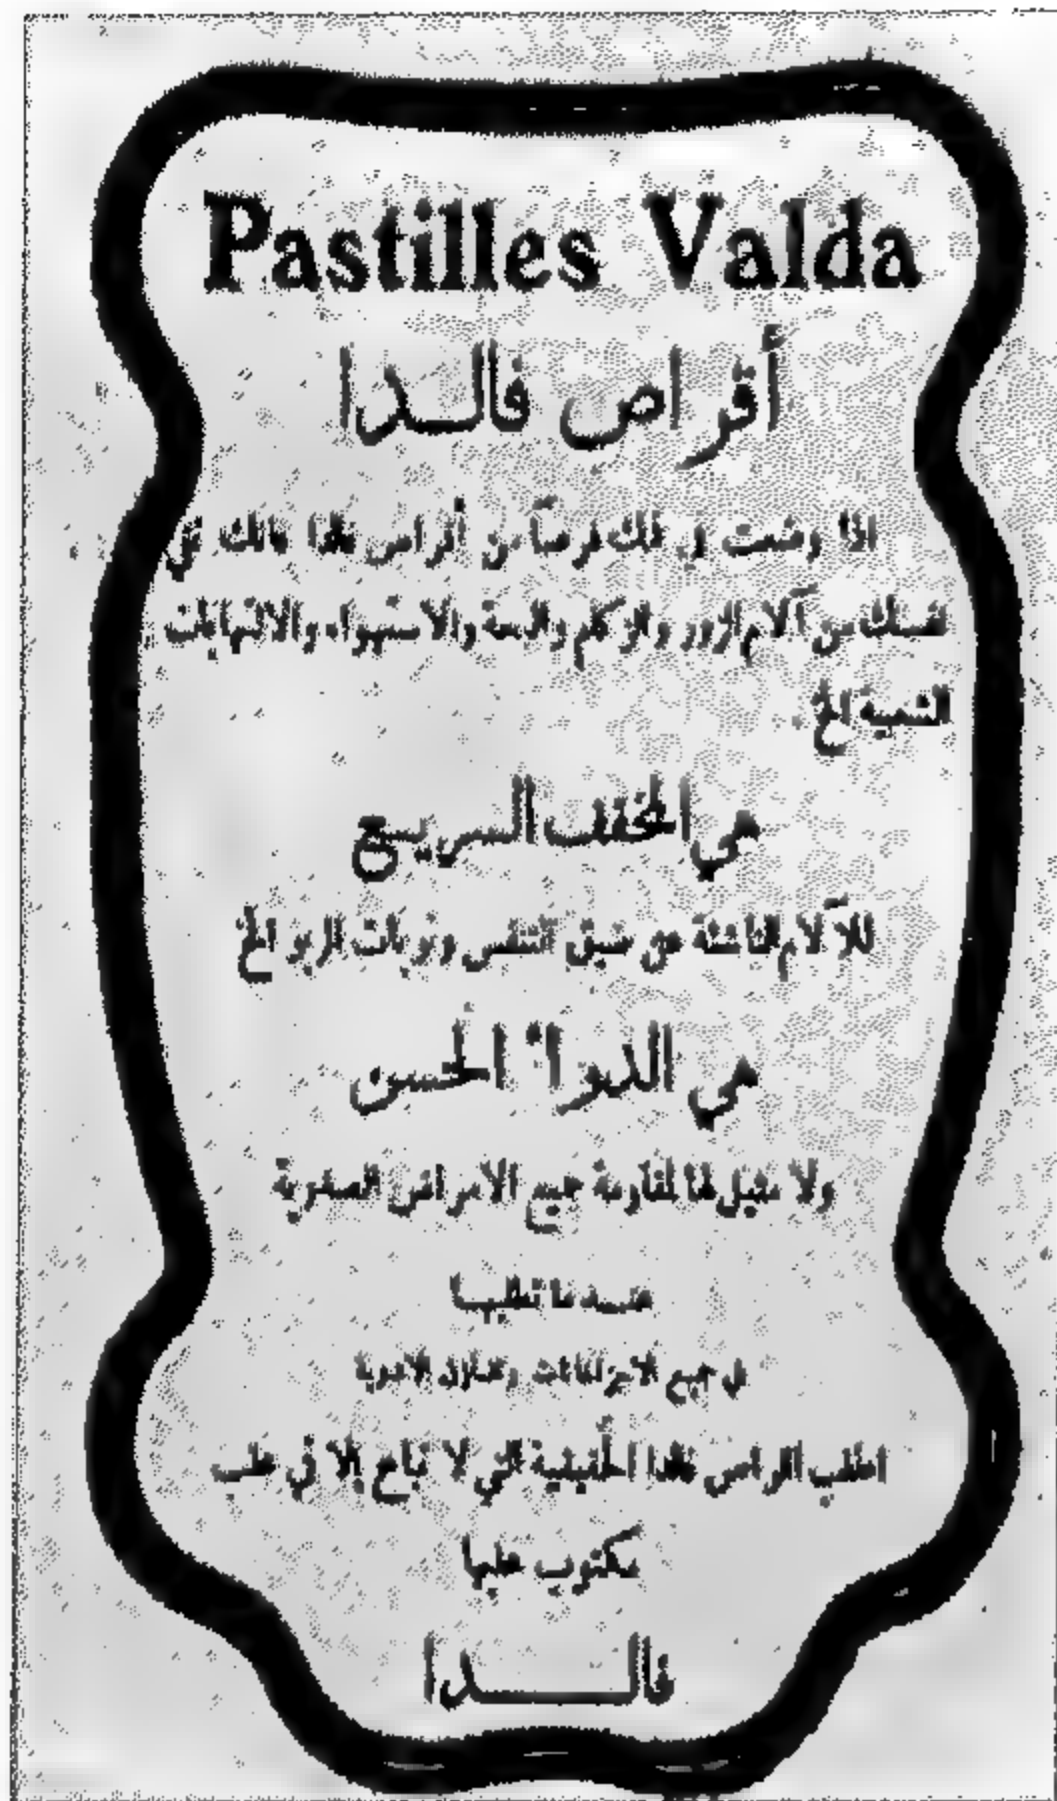 Pastilles Valda
أقراص فالـدا
اذا وضعت في فمك قرصاً من أقراص فالدا فانك تقي
نفسك من آلام الزور والزكام والبحة والاستهواء والالتهابات
الشعبية الخ .
هي المخفف السريع
للآلام الناشئة عن ضيق التنفس ونوبات الربو الخ
هي الدواء الحسن
ولا مثيل لها لمقاومة جميع الامراض الصدرية
عندما تطلبها
في جميع الاجزاخانات ومخازن الادوية
اطلب اقراص فالدا الحقيقية التي لا تباع إلا في علب
مكتوب عليها
فالـــدا